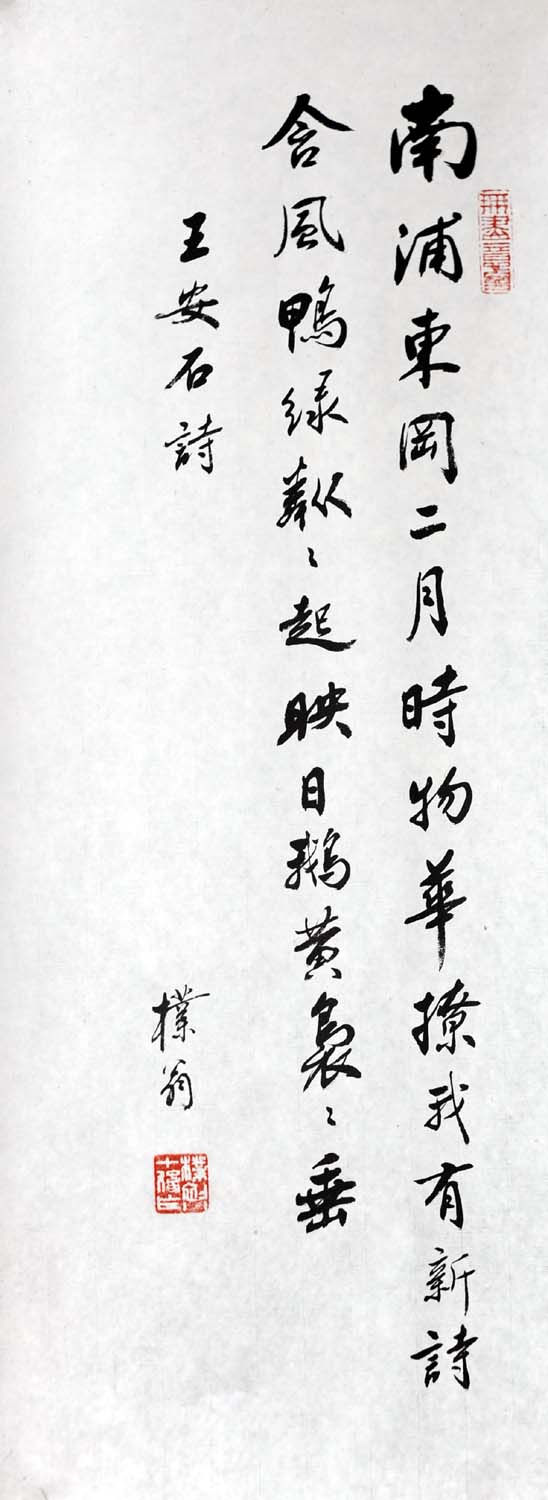 南浦東岡二月時物華撩我有新詩
含風鴨緑粼〻起映日鵝黄裊〻垂
王安石詩
樸翁